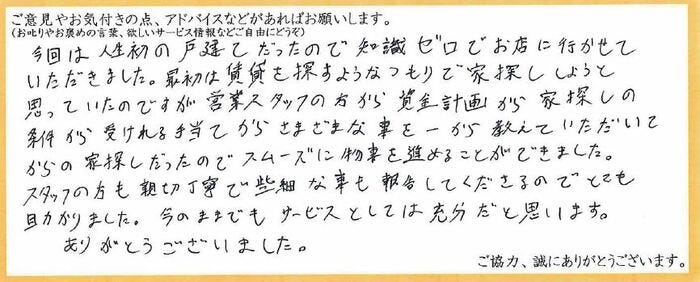 ご意見やお気付きの点、アドバイスなどがあればお願いします。
(お叱りやお褒めの言葉、欲しいサービス情報などご自由にどうぞ)
今回は人生初の戸建てだったので知識ゼロでお店に行かせて
いただきました。最初は賃貸を探すようなつもりで家探ししようと
思っていたのですが営業スタッフの方から資金計画から家探しの
条件から受けれる手当てからさまざまな事を一から教えていただいて
からの家探しだったのでスムーズに物事を進めることができました。
スタッフの方も親切丁寧で些細な事も報告してくださるのでとても
助かりました。今のままでもサービスとしては充分だと思います。
ありがとうございました。
ご協力、誠にありがとうございます。